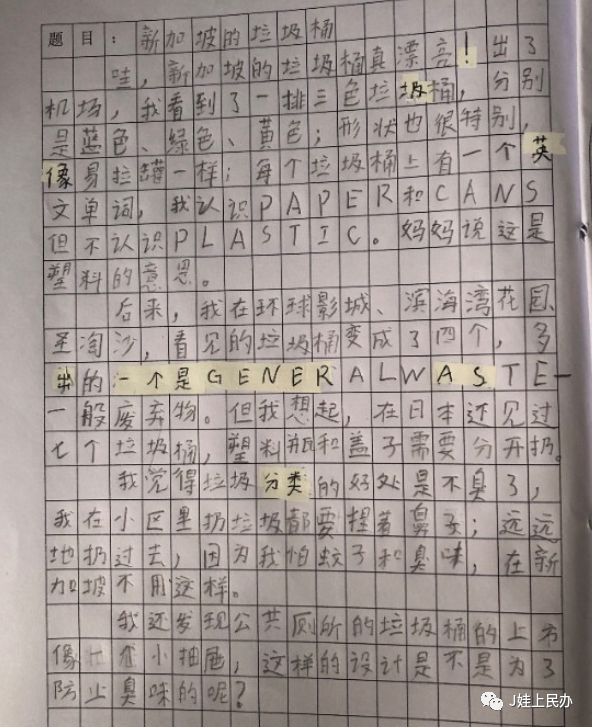 题目：新加坡的垃圾桶
哇，新加坡的垃圾桶真漂亮！出了
机场，我看到了一排三色垃圾桶，分别
是蓝色、绿色、黄色；形状也很特别，
像易拉罐一样；每个垃圾桶上有一个英
文单词，我认识PAPER和CANS
但不认识PLASTIC。妈妈说这是
塑料的意思。
后来，我在环球影城、滨海湾花园、
圣淘沙，看见的垃圾桶变成了四个，多
出的一个是GENERALWASTE—
一般废弃物。但我想起，在日本还见过
七个垃圾桶，塑料瓶和盖子需要分开扔。
我觉得垃圾分类的好处是不臭了，
我在小区里扔垃圾都要捏着鼻子；远远
地扔过去，因为我怕蚊子和臭味，在新
加坡不用这样。
我还发现公共厕所的垃圾桶的上方
像小抽屉，这样的设计是不是为了
防止臭味的呢？
J娃上民办